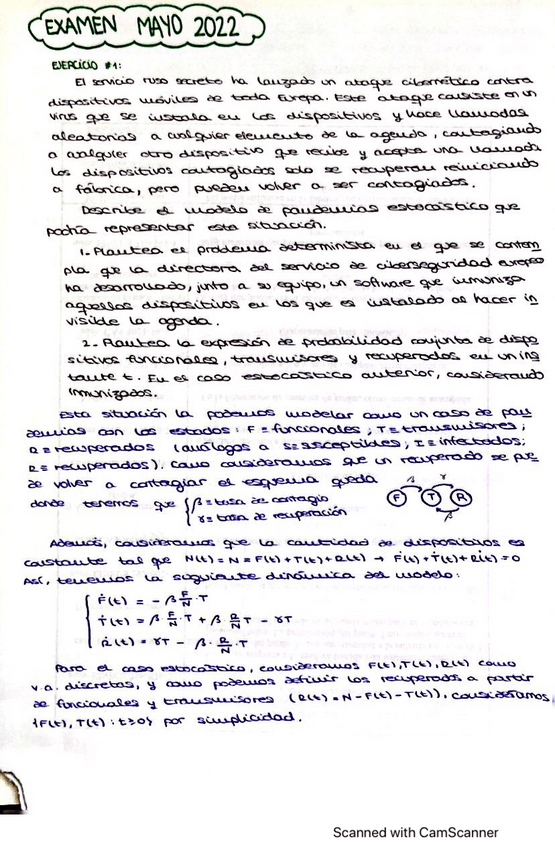 EXAMEN MAYO 2022
EJERCICIO #1:
El servicio ruso secreto ha lanzado un ataque cibernético contra
dispositivos móviles de toda Europa. Este ataque consiste en un
virus que se instala en los dispositivos y hace llamadas
aleatorias a cualquier elemento de la agenda, contagiando
a cualquier otro dispositivo que recibe y acepta una llamada
Los dispositivos contagiados solo se recuperan reiniciando
a fábrica, pero pueden volver a ser contagiados.
Describe el modelo de pandemias estocástico que
podría representar esta situación.
1. Plantea el problema determinista en el que se contem
pla que la directora del servicio de ciberseguridad europeo
ha desarrollado, junto a su equipo, un software que inmuniza
aquellos dispositivos en los que es instalado al hacer in
visible la agenda.
2. Plantea la expresión de probabilidad conjunta de dispo
sitivos funcionales, transmisores y recuperados en un ins
tante t. En el caso estocástico anterior, considerando
inmunizados.
Esta situación la podemos modelar como un caso de pan
demias con los estados: F = funcionales; T = transmisores;
R = recuperados (análogos a S = susceptibles; I = infectados;
R = recuperados). Como consideramos que un recuperado se pue
de volver a contagiar el esquema queda
donde tenemos que { β = tasa de contagio
γ = tasa de recuperación
β γ
F T R
β
Además, consideramos que la cantidad de dispositivos es
constante tal que N(t) = N = F(t) + T(t) + R(t) → Ḟ(t) + Ṫ(t) + Ṙ(t) = 0
Así, tenemos la siguiente dinámica del modelo:
Ḟ(t) = - β F/N · T
Ṫ(t) = β · F/N · T + β · R/N T - γT
Ṙ(t) = γT - β · R/N · T
Para el caso estocástico, consideramos F(t), T(t), R(t) como
v.a. discretas, y como podemos definir los recuperados a partir
de funcionales y transmisores (R(t) = N - F(t) - T(t)), consideramos
{F(t), T(t) : t ≥ 0} por simplicidad.
Scanned with CamScanner